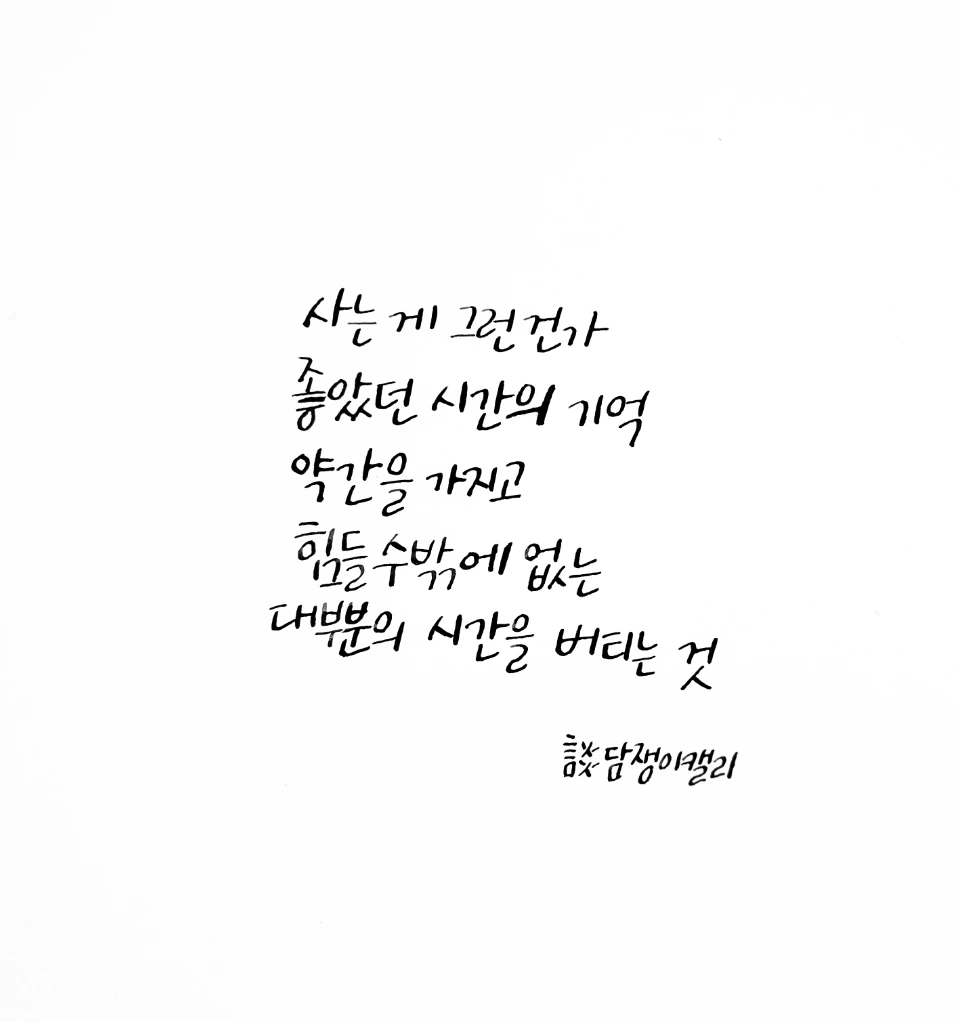 사는 게 그런건가
좋았던 시간의 기억
약간을 가지고
힘들 수밖에 없는
대부분의 시간을 버티는 것
談 담쟁이캘리